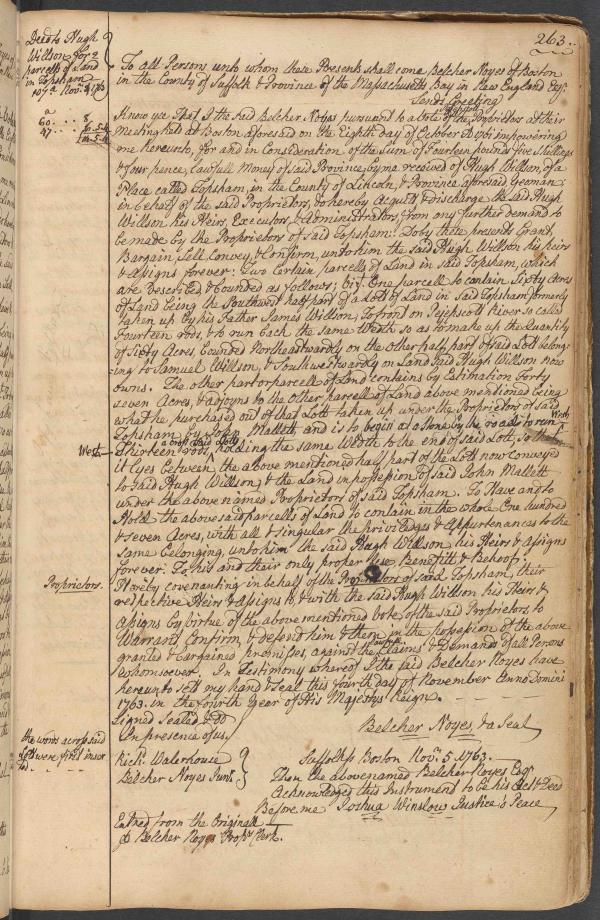 263.
Deed to Hugh
Willson for 2
parcells of Land
in Topsham
a
60 . . . . 8.
47 . . .
To all Persons unto whom these Presents shall come Belcher Noyes of Boston
in the County of Suffolk & Province of the Massachusetts Bay in New England Esqr.
Sends Greeting
Know ye That I the said Belcher Noyes pursuant to a Vote of the Proprietors at their
Meeting held at Boston aforesaid on the Eighth day of October impowering
me hereunto, for and in Consideration of the Sum of Fourteen pounds five Shillings
& four pence, Lawfull Money of said Province, by me received of Hugh Willson, of a
Place called Topsham, in the County of Lincoln, & Province aforesaid, Yeoman;
in behalf of the said Proprietors, do hereby Acquitt & discharge the said Hugh
Willson his Heirs, Executors, & Administrators, from any further Demand to
be made by the Proprietors of said Topsham: Do by these presents Grant,
Bargain Sell Convey, & Confirm, unto him the said Hugh Willson his heirs
& Assigns forever: Two Certain parcells of Land in said Topsham, which
are Described & bounded as follows; viz: One parcell to contain Sixty Acres
of Land being the Southwest half part of a Lott of Land in said Topsham formerly
taken up by his Father James Willson, to front on Pejepscott River so called
Fourteen rods, & to run back the same Width so as to make up the Quantity
of Sixty Acres, bounded Northeastwardly on the other half part of said Lott belong-
-ing to Samuel Willson, & Southwestwardly on Land said Hugh Willson now
owns. The other part or parcell of Land contains by Estimation Forty
seven Acres, & adjoyns to the other parcell of Land above mentioned being
what he purchased out of that Lott taken up under the Proprietors of said
Topsham by John Mallett and is to begin at a stone by the road to run West
West
across said Lotts
Thirteen rods, holding the same Width to the end of said Lott, so that
it lyes between the above mentioned half part of the Lott now conveyed
to said Hugh Willson, & the Land in possession of said John Mallett
under the above named Proprietors of said Topsham. To Have and to
Hold the abovesaid parcells of Land to contain in the whole One hundred
& seven Acres, with all & singular the priviledges & Appurtenances to the
same belonging, unto him the said Hugh Willson his Heirs & Assigns
forever: To his and their only proper Use, Benefitt & Behoof;
Proprietors.
Hereby covenanting in behalf of the Proprietors of said Topsham, their
respective Heirs & Assigns to, & with the said Hugh Willson his Heirs &
Assigns by virtue of the above mentioned Vote, of the said Proprietors, to
Warrant Confirm, & defend him & them, in the possession of the above
granted & bargained premisses, against the Lawfull Claims & Demands of all Persons
whomsoever. In Testimony whereof I the said Belcher Noyes have
hereunto Sett my hand & Seal this fourth day of November Anno Domini
1763. in the Fourth Year of His Majestys Reign.
Signed Sealed & DD
In presence of us.
Belcher Noyes & a Seal
the words across said
Lotts were first inser
ted.
Richd. Waterhouse
Belcher Noyes Junr.
Suffolk ss Boston Novr. 5. 1763.
Then the abovenamed Belcher Noyes Esqr.
Acknowledged this Instrument to be his Act & Deed
Before me Joshua Winslow Justice o Peace
Entred from the Originall
p Belcher Noyes Proprs. Clerk.